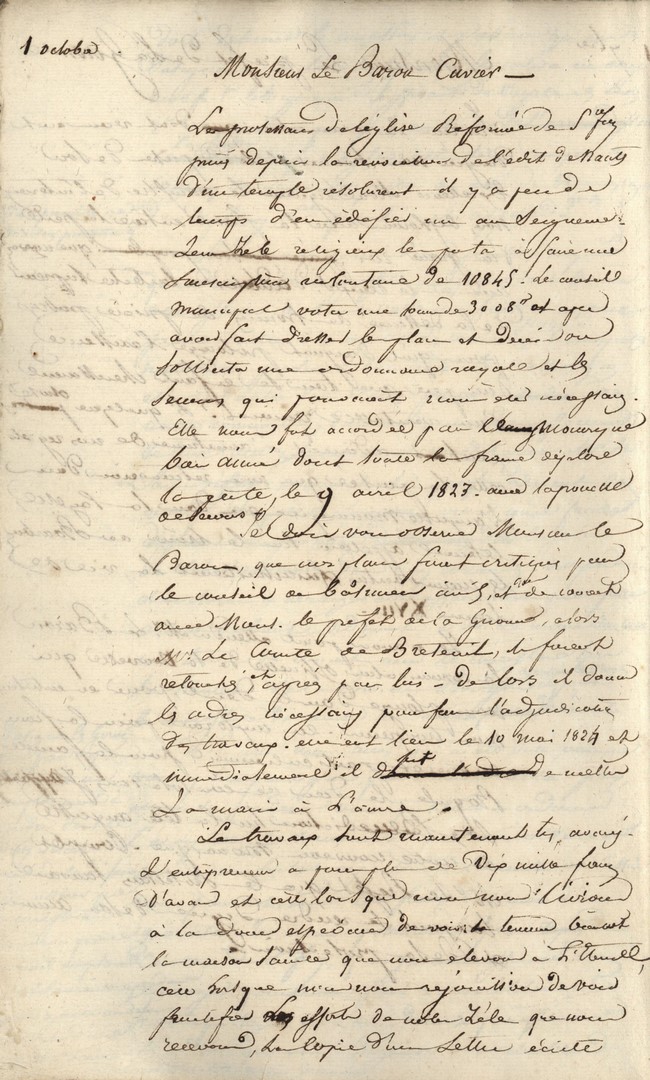 1 octobre
Monsieur Le Baron Cuvier —
Les professans de l'église Réformée de Ste foy
privés depuis la révocation de l'édit de Nants
d'un temple résolurent il y a peu de
temps d'en édifier un au Seigneur.
Leur zèle religieux les porta à faire une
souscription volontaire de 10845. Le conseil
municipal vota une somme de 3008 et apres
avoir fait dresser le plan et devis on
sollicita une ordonnance royale et les
secours qui pouvoient nous etre nécessaires.
Elle nous fut accordée par le Monarque
bien aimé dont toute la france déplore
la perte, le 9 avril 1823. avec la promesse
de secours
Je dois vous observer Monsieur le
Baron, que nos plans furent critiqués par
le conseil de bâtimens civils, et que de concert
avec Mons. le préfet de la Gironde, alors
Mr. Le Comte de Breteuil, ils furent
retouchés, et agréés par lui - de lors il donna
les ordres nécessaires pour faire l'adjudication
des travaux. elle eut lieu le 10 mai 1824 et
immédiatement il fut de mettre
La main à l'œuvre.
Les travaux sont maintenant très avancés.
L'entrepreneur a pour plus de Dix mille francs
d'avance et c'est lorsque nous nous livrions
à la douce espérance de voir terminer bientot
la maison sainte que nous élevons à l'Eternel,
c'est lorsque nous nous rejouissions de voir
fructifier les efforts de notre zèle que nous
recevons, La copie d'une Lettre écrite